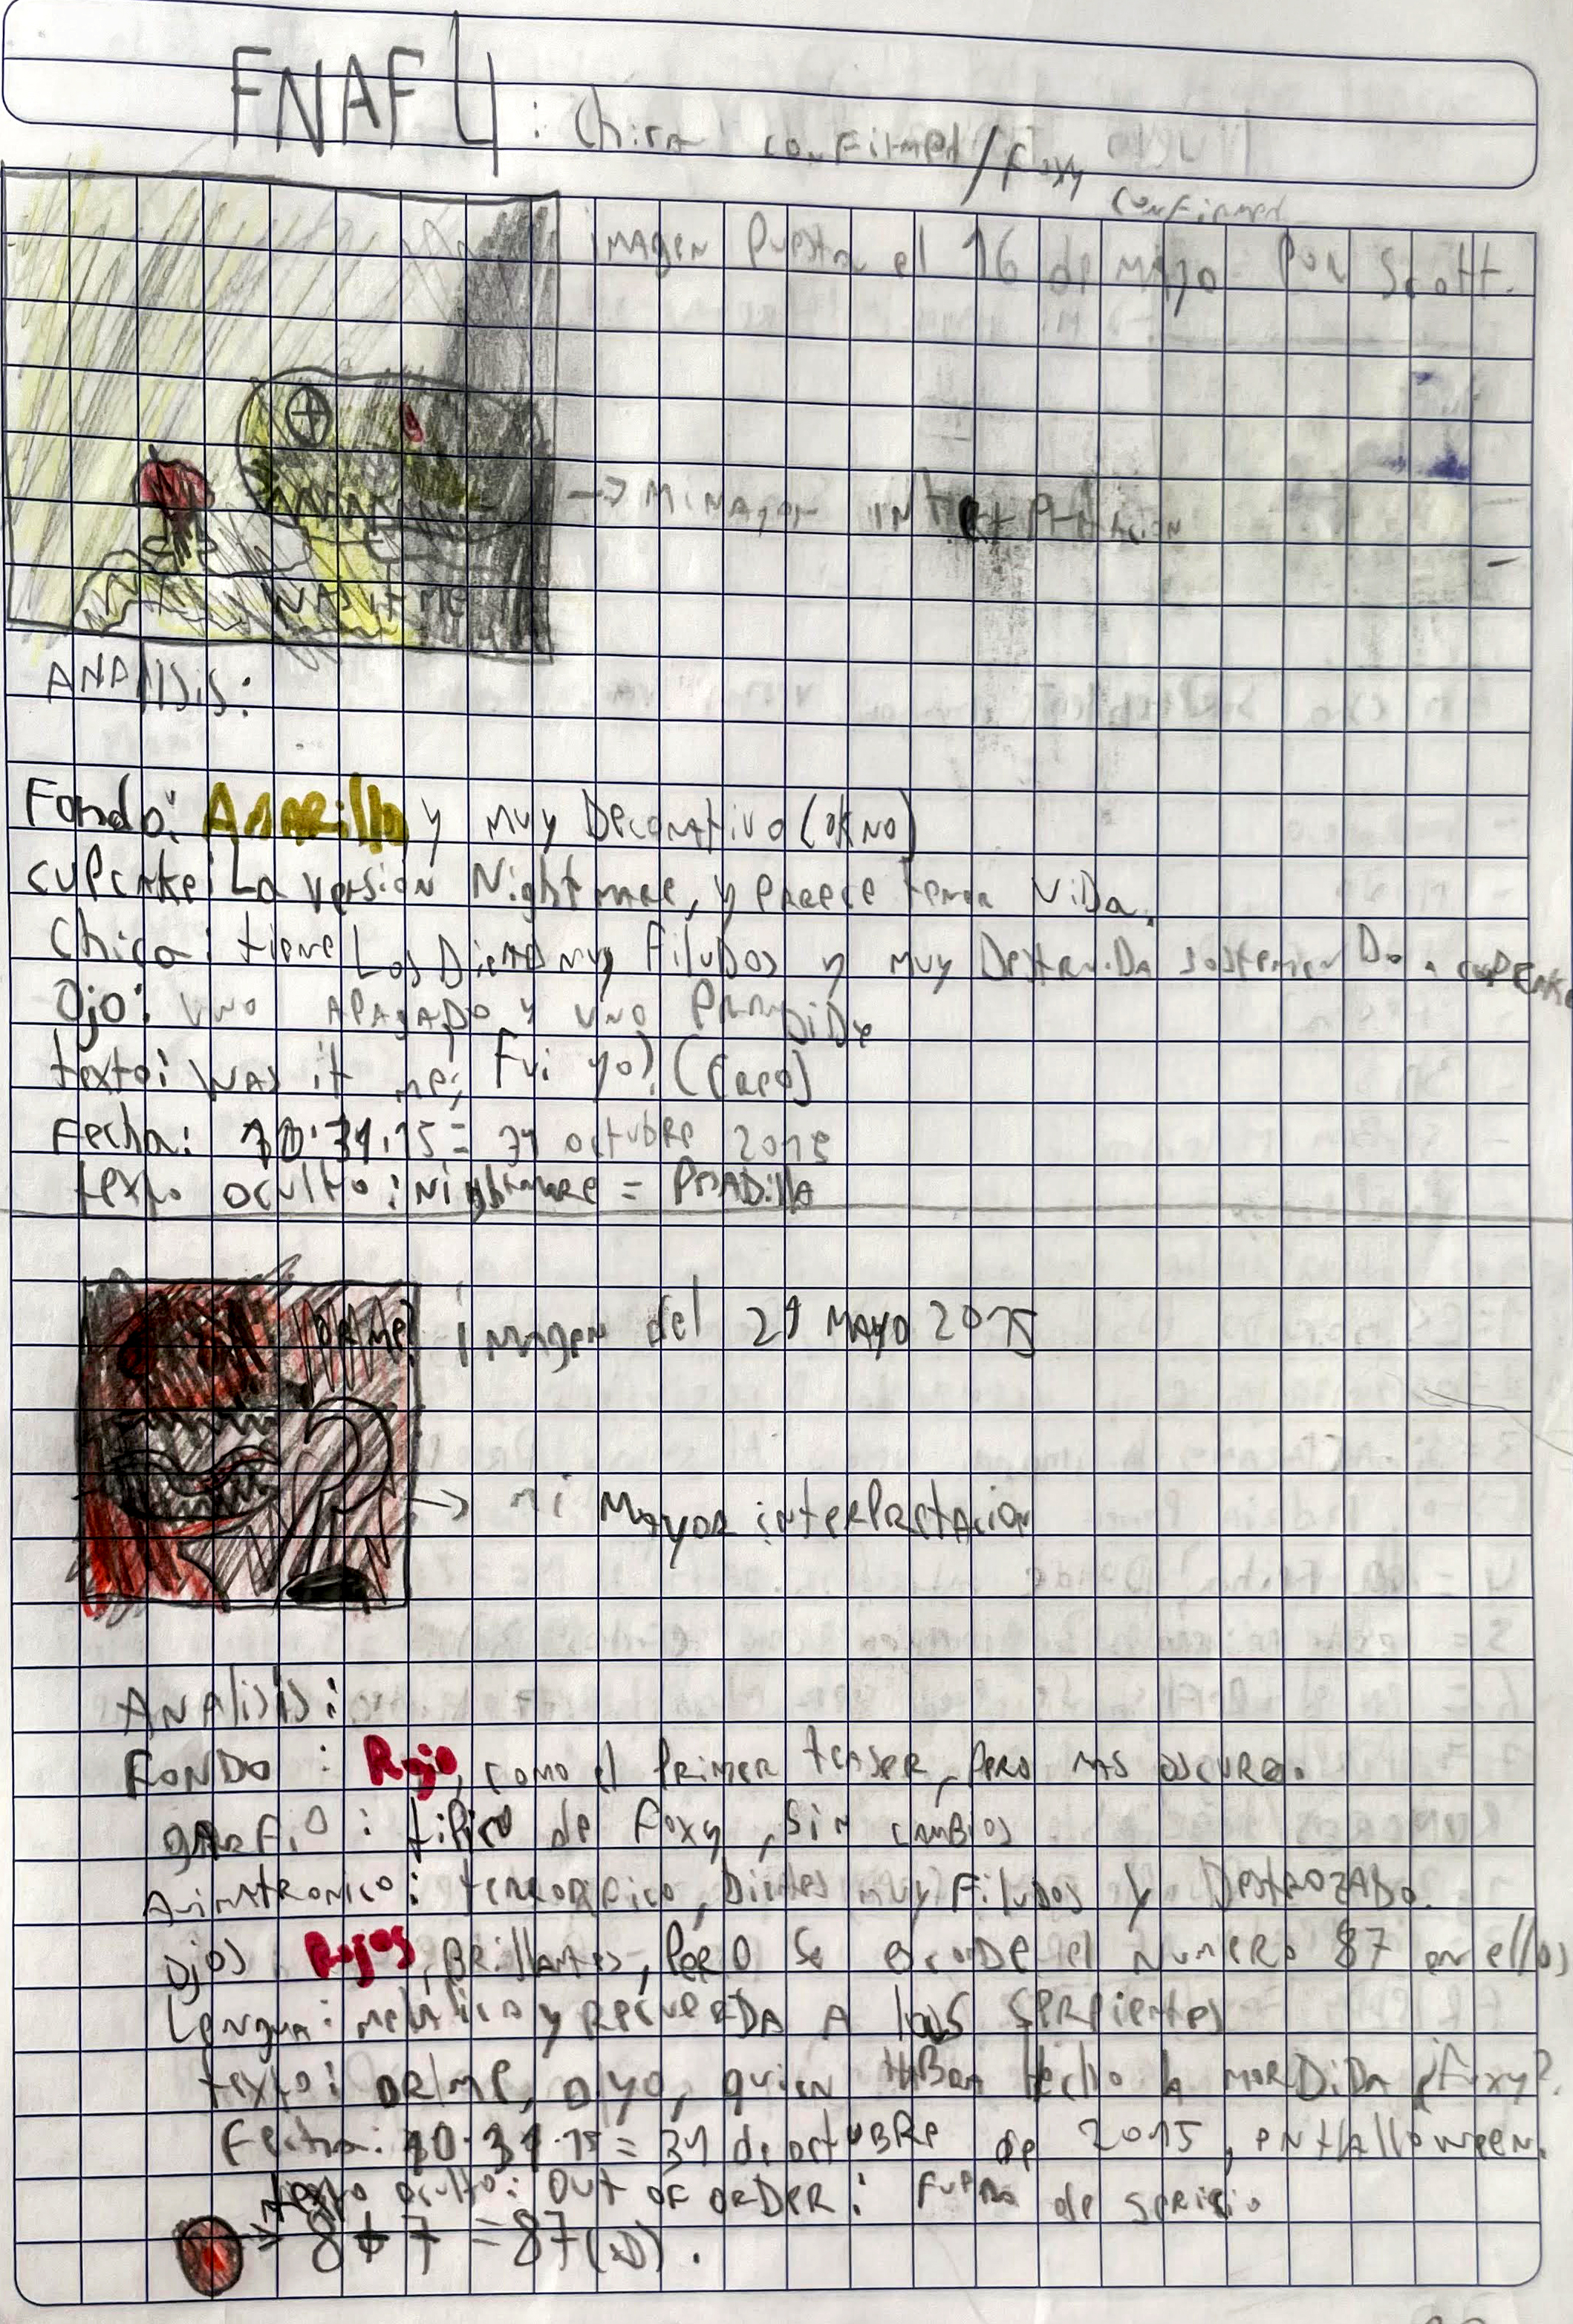 FNAF 4: Chica confirmed / Foxy
confirmed
imagen puesta el 16 de mayo por Scott.
→ Mi mayor interpretacion
WAS IT ME
ANALISIS:
Fondo: Amarillo y muy Decorativo (ok no)
cupcake: La version Nightmare, y parece tener viDa.
Chica: tiene Los Dientes muy FiluDos y muy DestruiDa sostenienDo a cupcake
Ojo: uno apagaDo y uno prenDiDo
texto: was it me; Fui yo? (creo)
Fecha: 10.31.15 = 31 octubre 2015
texto oculto: nightmare = PesaDilla
OR ME?
imagen del 21 MAYO 2015
→ mi Mayor interpretacion
Analisis:
FonDo: Rojo, como el primer teaser, pero mas oscuro.
garfio: tipico de Foxy, sin cambios
Animatronico: terrorifico, Dientes muy FiluDos y DestrozaDo.
Ojos: Rojos, Brillantes, pero se esconDe el numero 87 en ellos
Lengua: metalico y recuerDa a las serpientes
texto: or me, o yo, quien habra hecho la morDiDa ¿Foxy?.
Fecha: 10.31.15 = 31 de octubre de 2015, en Halloween.
texto oculto: out of orDer: Fuera de sericio
→ 8 + 7 = 87 (xD).